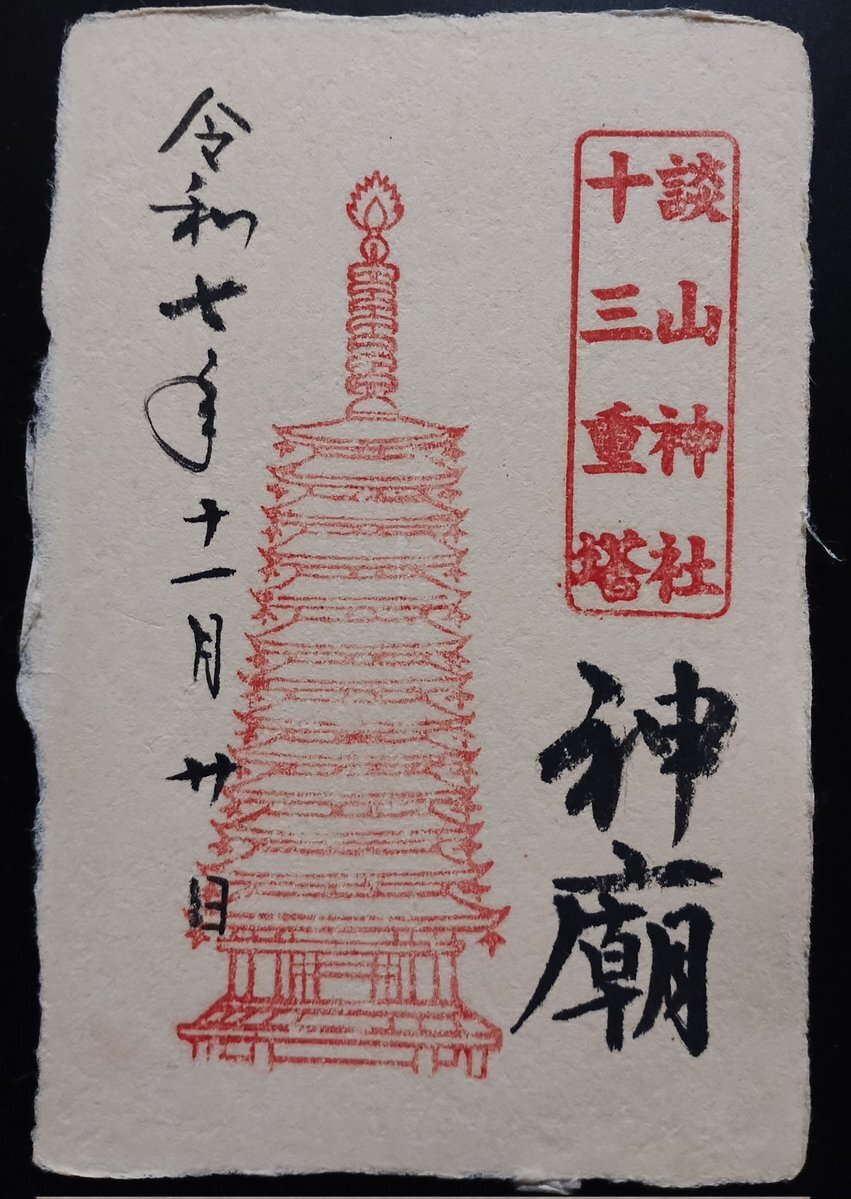 談山神社
十三重塔
神廟
令和七年十一月廿日